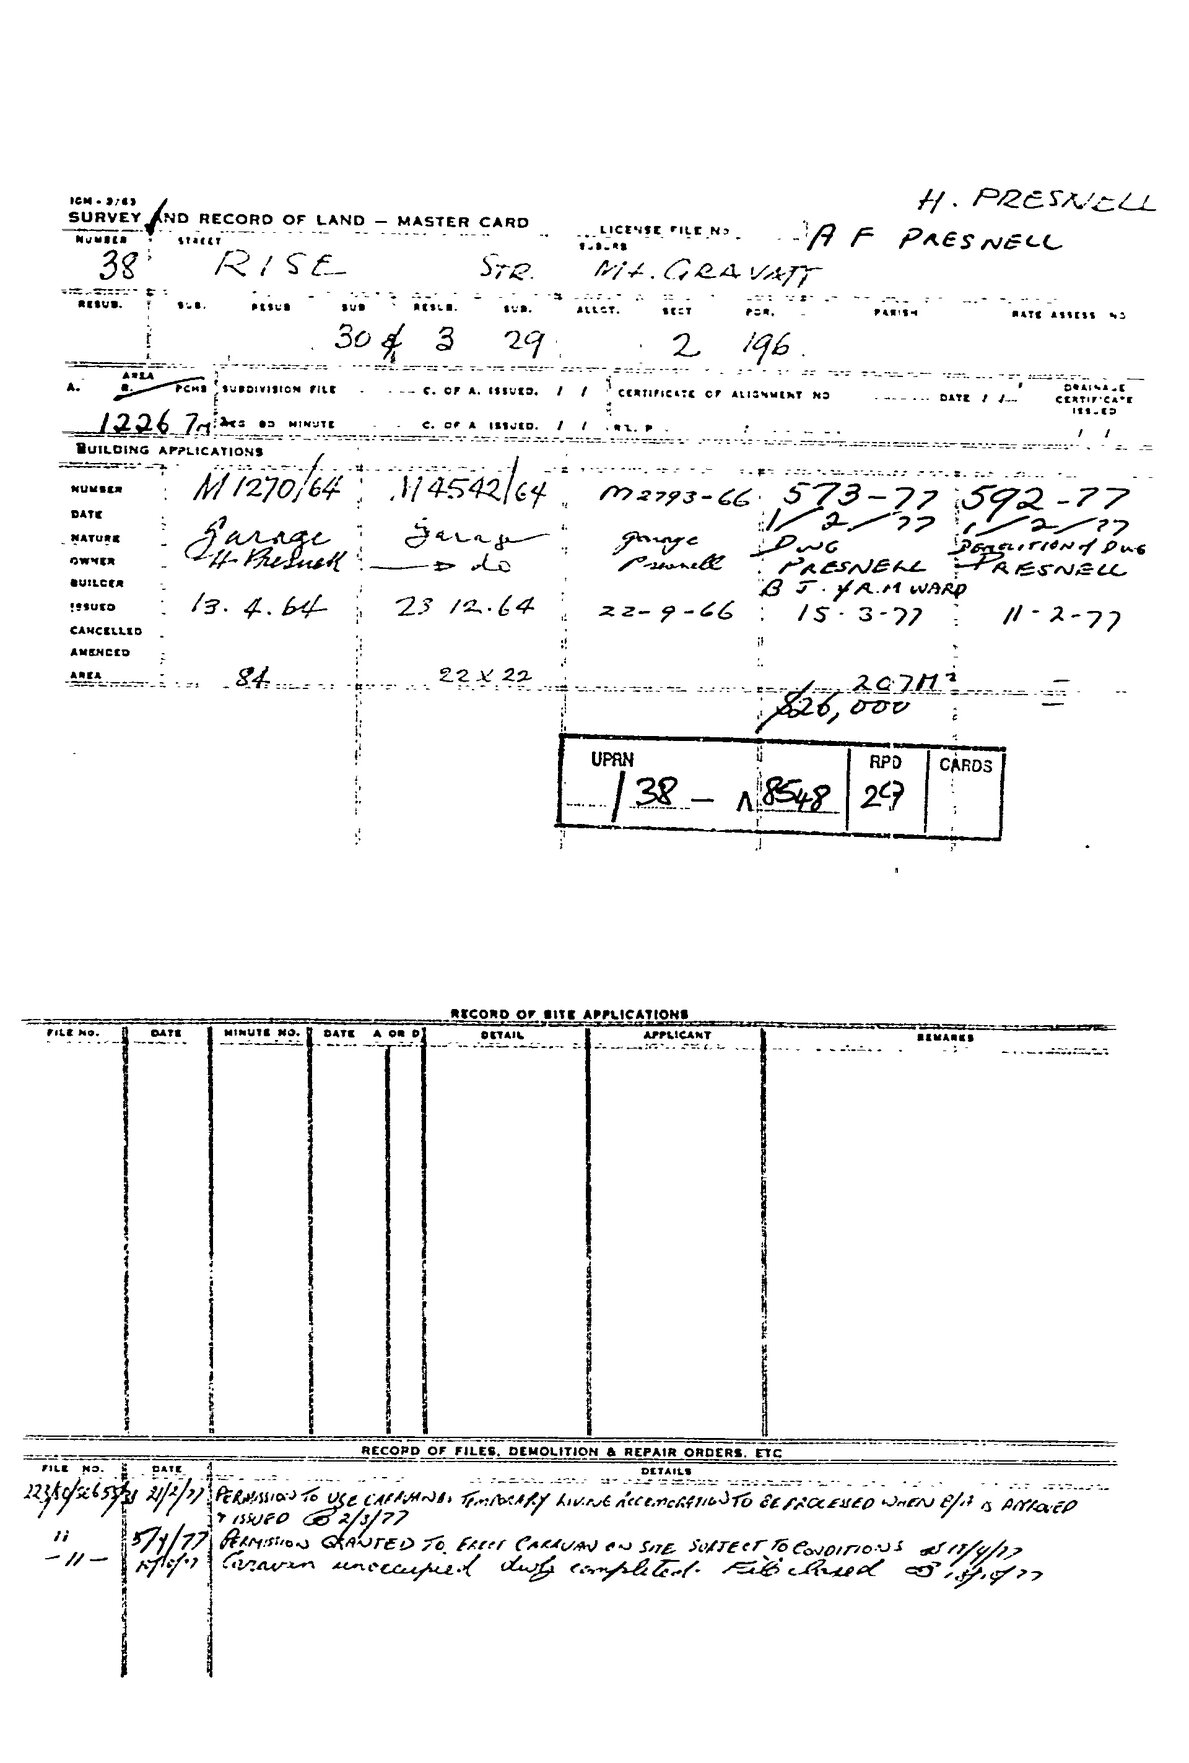 H. PRESNELL
SURVEY AND RECORD OF LAND — MASTER CARD
LICENSE FILE NO
A F PRESNELL
NUMBER STREET SUBURB
38 RISE STR. Mt. GRAVATT
RESUB. SUB. RESUB SUB RESUB. SUB. ALLOT. SECT POR. PARISH RATE ASSESS NO
30 & 3 29 2 196
AREA
A. R. PCHS SUBDIVISION FILE C. OF A. ISSUED. / / CERTIFICATE OF ALIGNMENT NO DATE / / DRAINAGE CERTIFICATE ISSUED
1226 7M BD MINUTE C. OF A ISSUED. / / / /
BUILDING APPLICATIONS
NUMBER M1270/64 M4542/64 M2793-66 573-77 592-77
DATE 1/2/77 1/2/77
NATURE Garage Garage garage DWG DEMOLITION of DWG
OWNER H Presnell do Presnell PRESNELL PRESNELL
BUILDER B J. & R.M WARD
ISSUED 13.4.64 23 12.64 22-9-66 15-3-77 11-2-77
CANCELLED
AMENDED
AREA 84 22 x 22 207M² —
$26,000 —
UPRN RPD CARDS
/ 38 — 8548 29
RECORD OF SITE APPLICATIONS
FILE NO. DATE MINUTE NO. DATE A OR D DETAIL APPLICANT REMARKS
RECORD OF FILES, DEMOLITION & REPAIR ORDERS, ETC
FILE NO. DATE DETAILS
21/2/77 PERMISSION TO USE CARAVAN TEMPORARY LIVING ACCOMMODATION TO BE PROCESSED WHEN B/A IS APPROVED
& ISSUED 2/3/77
" 5/4/77 PERMISSION GRANTED TO ERECT CARAVAN ON SITE SUBJECT TO CONDITIONS
—"— Caravan unoccupied dwg completed. File closed